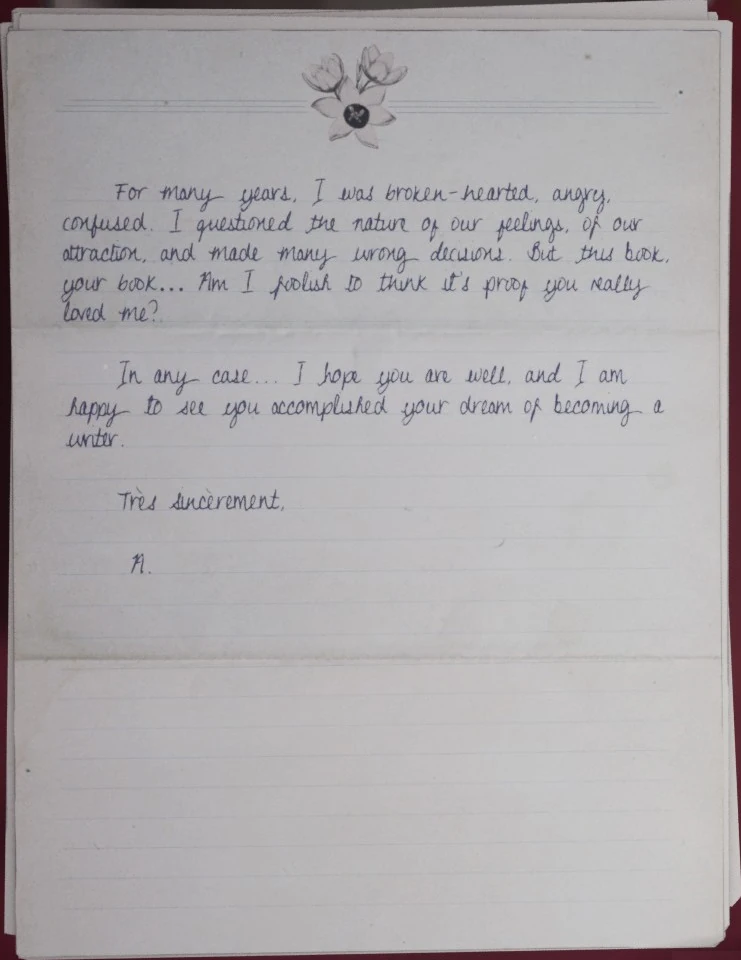 For many years, I was broken-hearted, angry,
confused. I questioned the nature of our feelings, of our
attraction, and made many wrong decisions. But this book,
your book... Am I foolish to think it's proof you really
loved me?
In any case... I hope you are well, and I am
happy to see you accomplished your dream of becoming a
writer.
Très sincèrement,
A.